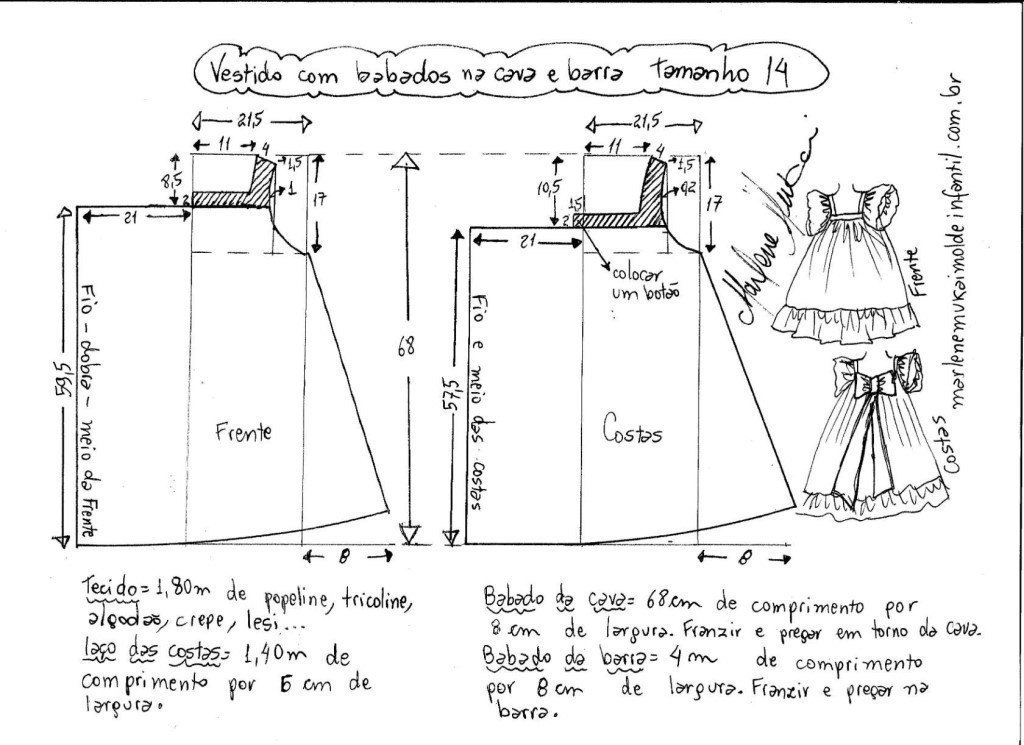 Vestido com babados na cava e barra Tamanho 14
21,5
11
4
1,5
8,5
2
1
17
21
59,5
Fio - dobra - meio da Frente
Frente
8
68
21,5
11
4
1,5
10,5
1,5
2
17
21
colocar
um botão
57,5
Fio e meio das costas
Costas
8
Frente
Costas
marlenemukaimoldeinfantil.com.br
Tecido = 1,80m de popeline, tricoline,
algodão, crepe, lesi...
laço das costas = 1,40m de
comprimento por 6 cm de
largura.
Babado da cava = 68cm de comprimento por
8 cm de largura. Franzir e pregar em torno da cava.
Babado da barra = 4m de comprimento
por 8cm de largura. Franzir e pregar na
barra.